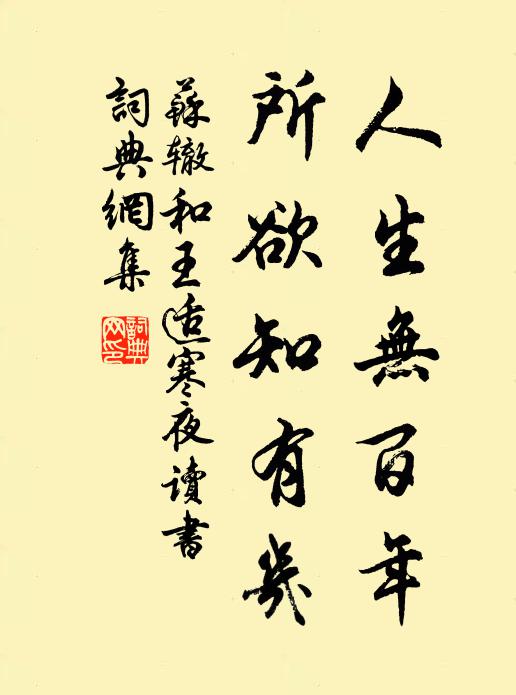 人生無百年
所欲知有幾
蘇辙和王适寒夜讀書
詞典網集
詞典网印